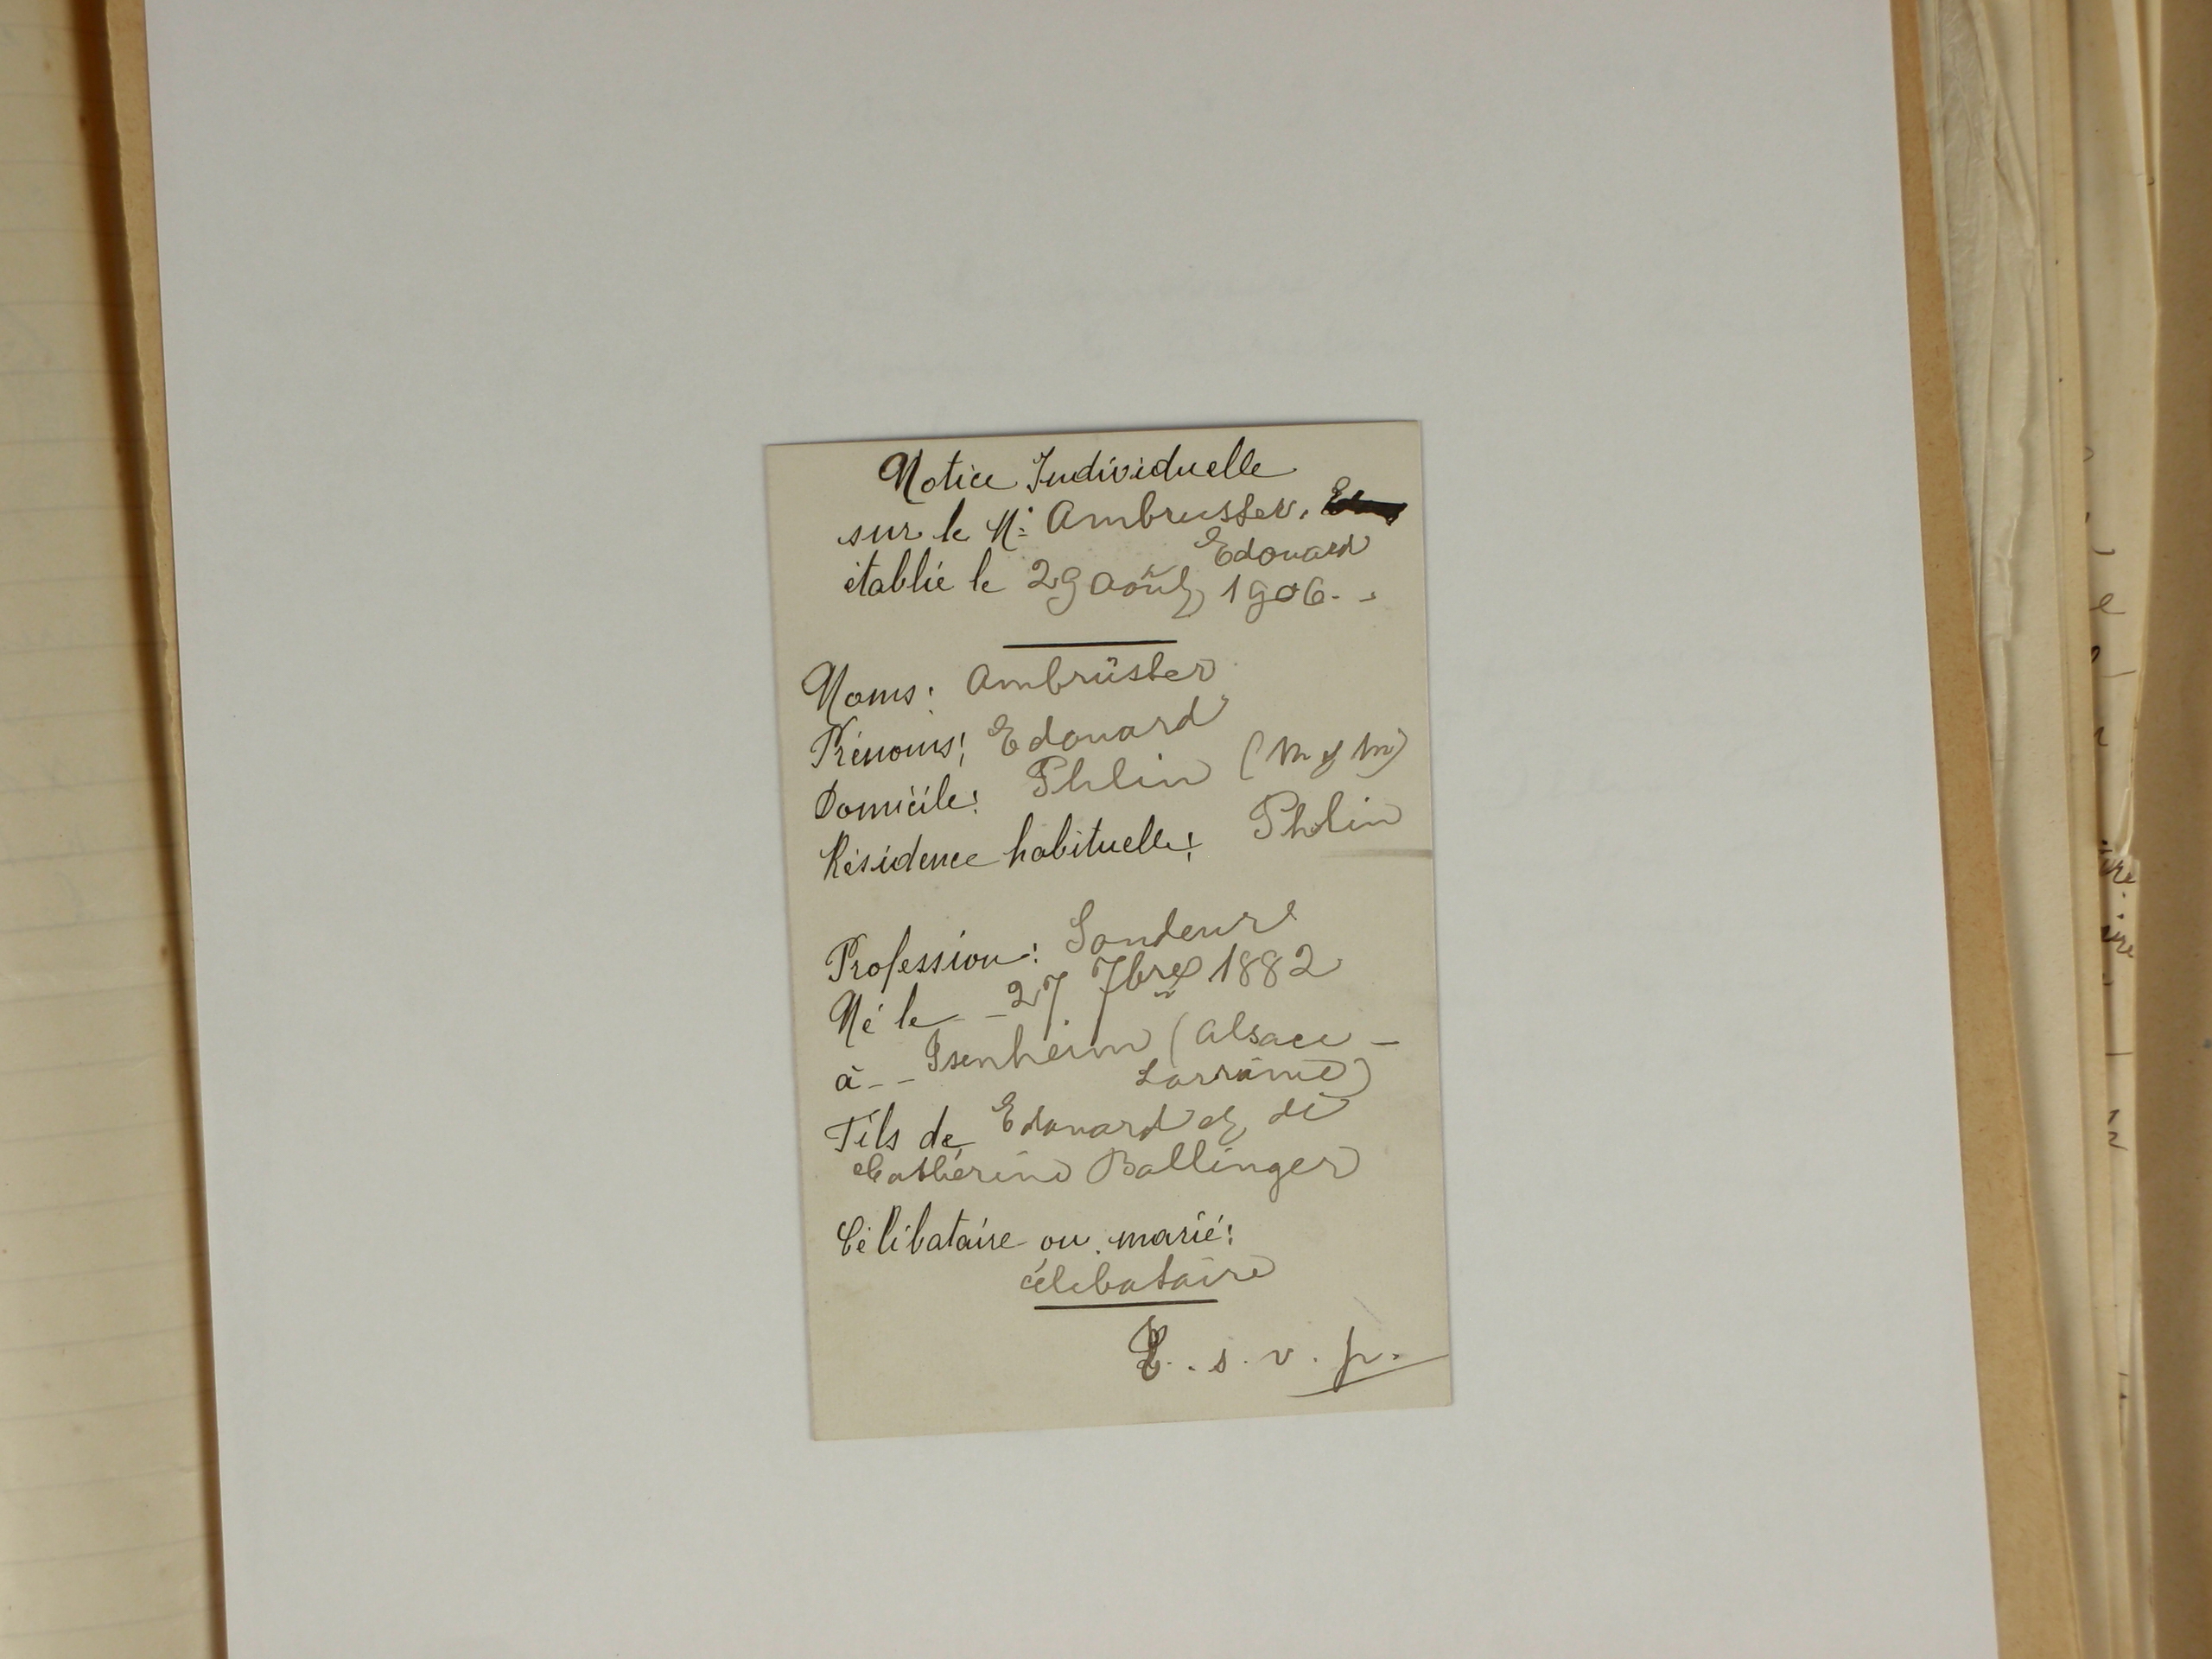 Notice Individuelle
sur le N: Ambruster.
Edouard
établie le 29 Août 1906.
Noms: Ambrüster
Prénoms: Edouard
Domicile: Phlin (M & M)
Résidence habituelle: Phlin
Profession: Sondeur
Né le 27 7bre 1882
à Isenheim (Alsace-
Lorraine)
Fils de Edouard et de
Catherine Ballinger
Célibataire ou marié:
célibataire
T. s. v. p.